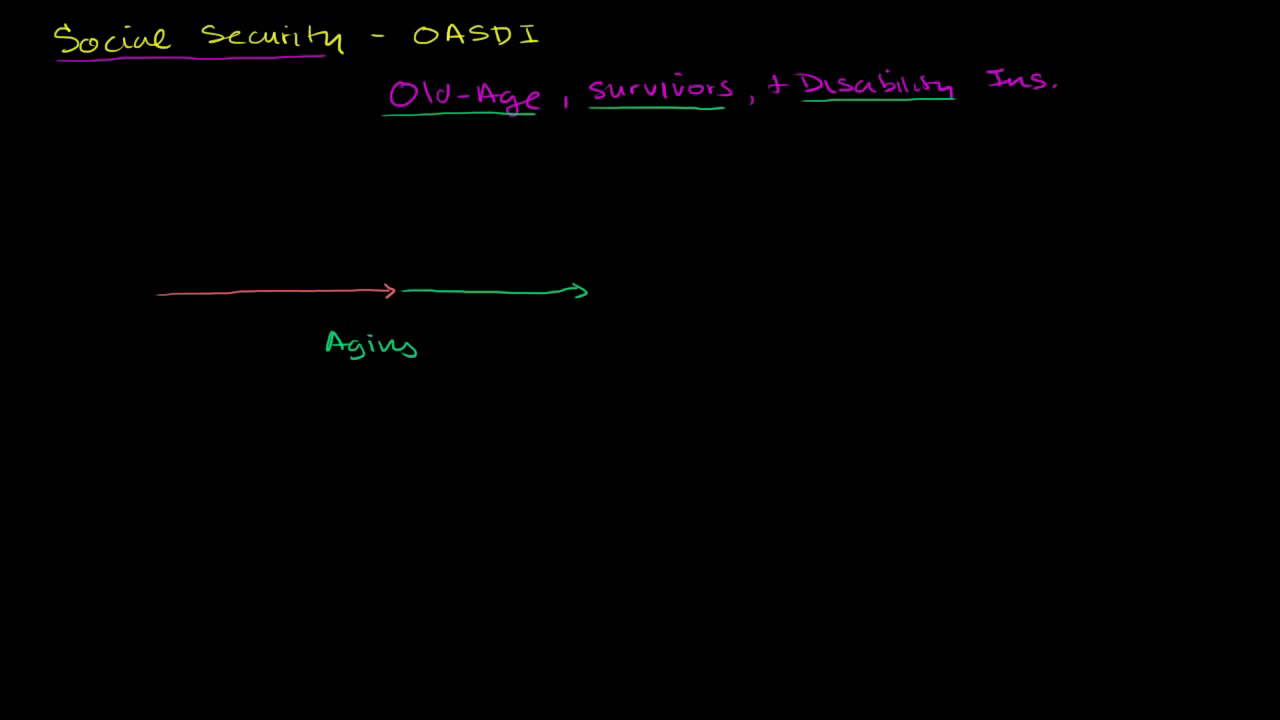 Social Security - OASDI
Old-Age, survivors, + Disability Ins.
Aging